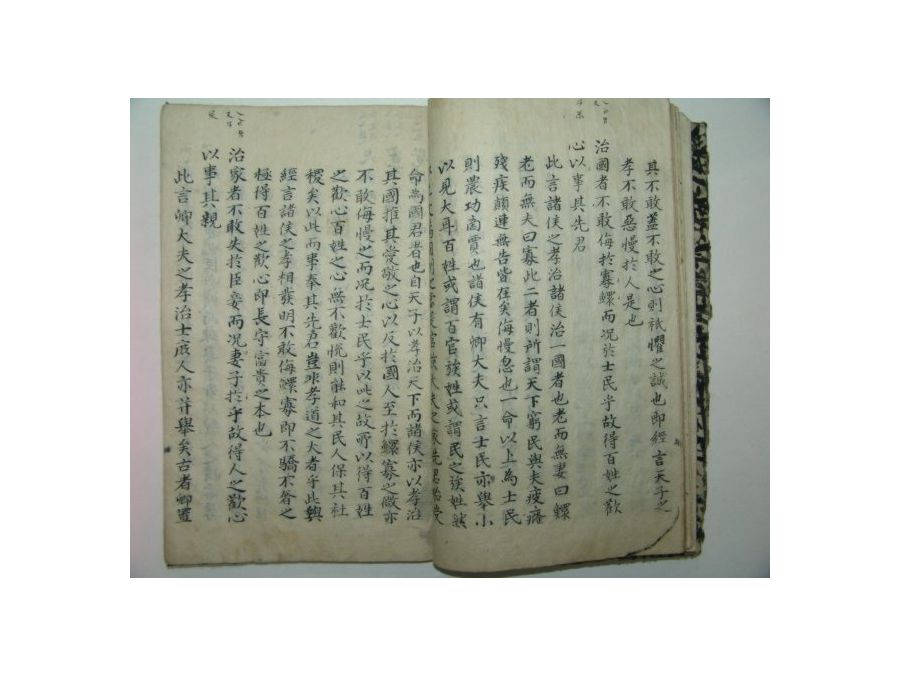 其不敢蓋不敢之心則祗懼之誠也即經言天子之
孝不敢惡慢於人是也
治國者不敢侮於寡鰥而况於士民乎故得百姓之歡
心以事其先君
此言諸侯之孝治諸侯治一國者也老而無妻曰鰥
老而無夫曰寡此二者則所謂天下窮民與夫疲癃
殘疾顛連無告皆在矣侮慢忽也一命以上為士民
則農功啇賈也諸侯有卿大夫只言士民亦舉小
以見大耳百姓或謂百官族姓或謂民之族姓
命為國君者也自天子以孝治天下而諸侯亦以孝治
其國推其愛敬之心以及於國人至於鰥寡之微亦
不敢侮慢之而况於士民乎以此之故所以得百姓
之歡心百姓之心無不歡悅則能和其民人保其社
稷矣以此而事奉其先君豈非孝道之大者乎此與
經言諸侯之孝相發明不敢侮鰥寡即不驕不吝之
極得百姓之歡心即長守富貴之本也
治家者不敢失於臣妾而况妻子於乎故得人之歡心
以事其親
此言卿大夫之孝治士庶人亦并舉矣古者卿置